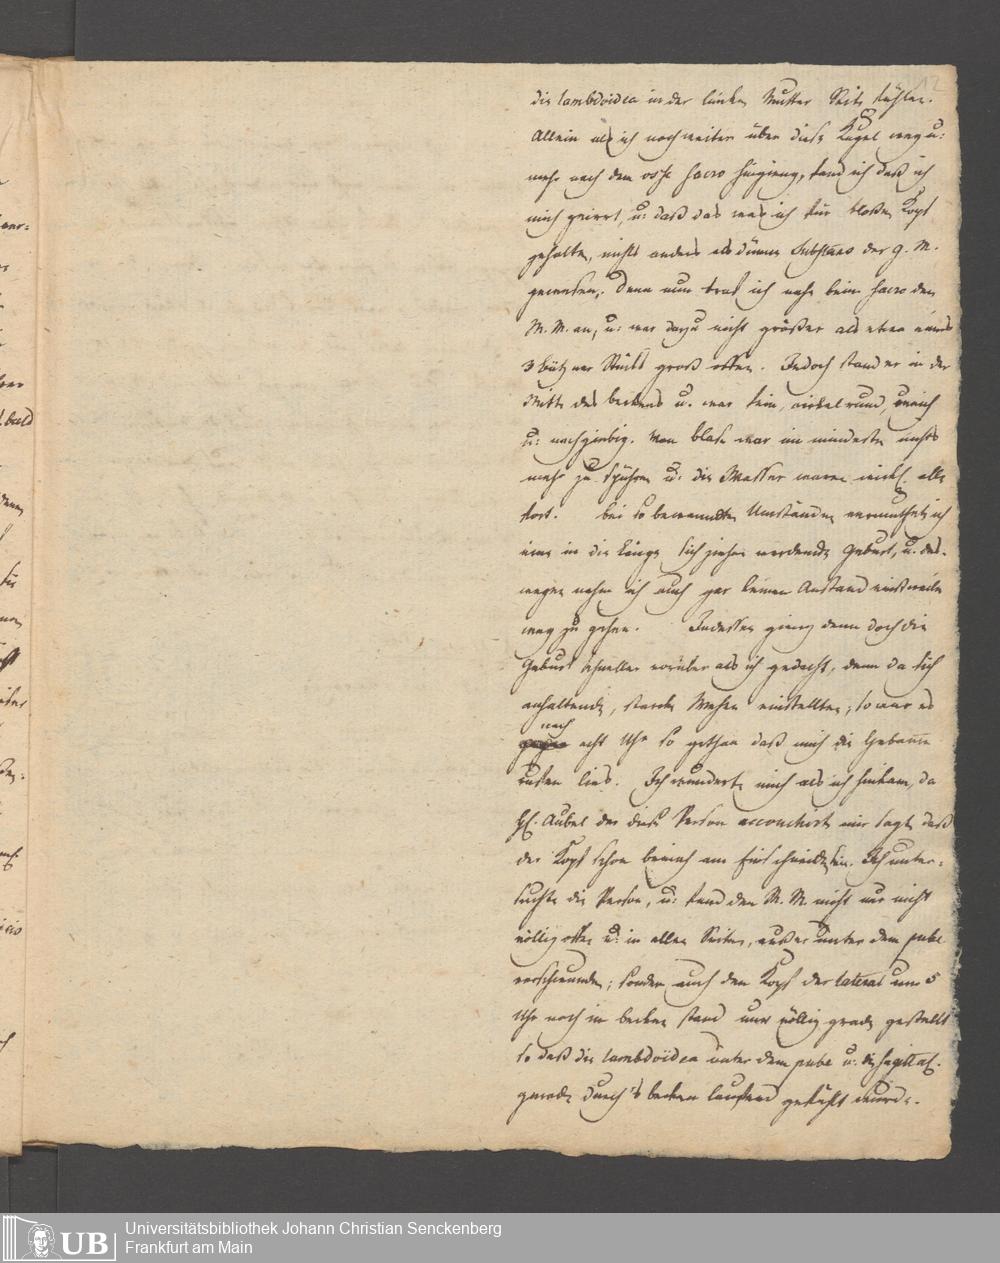 12
die lambdoidea in der linken Mutter Seite fühlen.
Allein als ich noch weiter über diese Kugel weg u:
mehr nach dem osse sacro hingieng, fand ich daß ich
mich geirrt, u: daß das was ich für bloßen Kopf
gehalten, nichts anders als dünne Substanz der g. M.
gewesen; denn nun traf ich nahe beim sacro den
M. M. an, u: war dazu nicht größer als etwa eines
3 bätzner Stücks groß offen. Jedoch stand er in der
Mitte des beckens u. war fein, cirkelrund, weich
u: nachgiebig. Von blase war im mindesten nichts
mehr zu spühren u: die Wasser waren wirkl. alle
fort. bei so bewandten Umständen vermuthete ich
eine in die Länge sich ziehen werdende Geburt, u. des-
wegen nahm ich auch gar keinen Anstand einstweilen
weg zu gehen. Indessen gieng denn doch die
Geburt schneller vorüber als ich gedacht, denn da sich
anhaltende, starcke Wehen einstellten; so war es
nach
acht Uhr so gethan daß mich die Hebamme
rufen lies. Ich wunderte mich als ich hinkam, da
H. Aubel der diese Person accouchirt mir sagte daß
der Kopf schon beinah am Einschneiden sei. Ich unter-
suchte die Person, u: fand den M. M. nicht nur nicht
völlig offen u: in allen Seiten, außer unter dem pube
verschwunden; sondern auch den Kopf der lateral um 5
Uhr noch im becken stand nun völlig grade gestellt
so daß die lambdoidea unter dem pube u. die sagittal.
gerade durch's becken laufend gefühlt wurde.
Universitätsbibliothek Johann Christian Senckenberg
Frankfurt am Main
UB